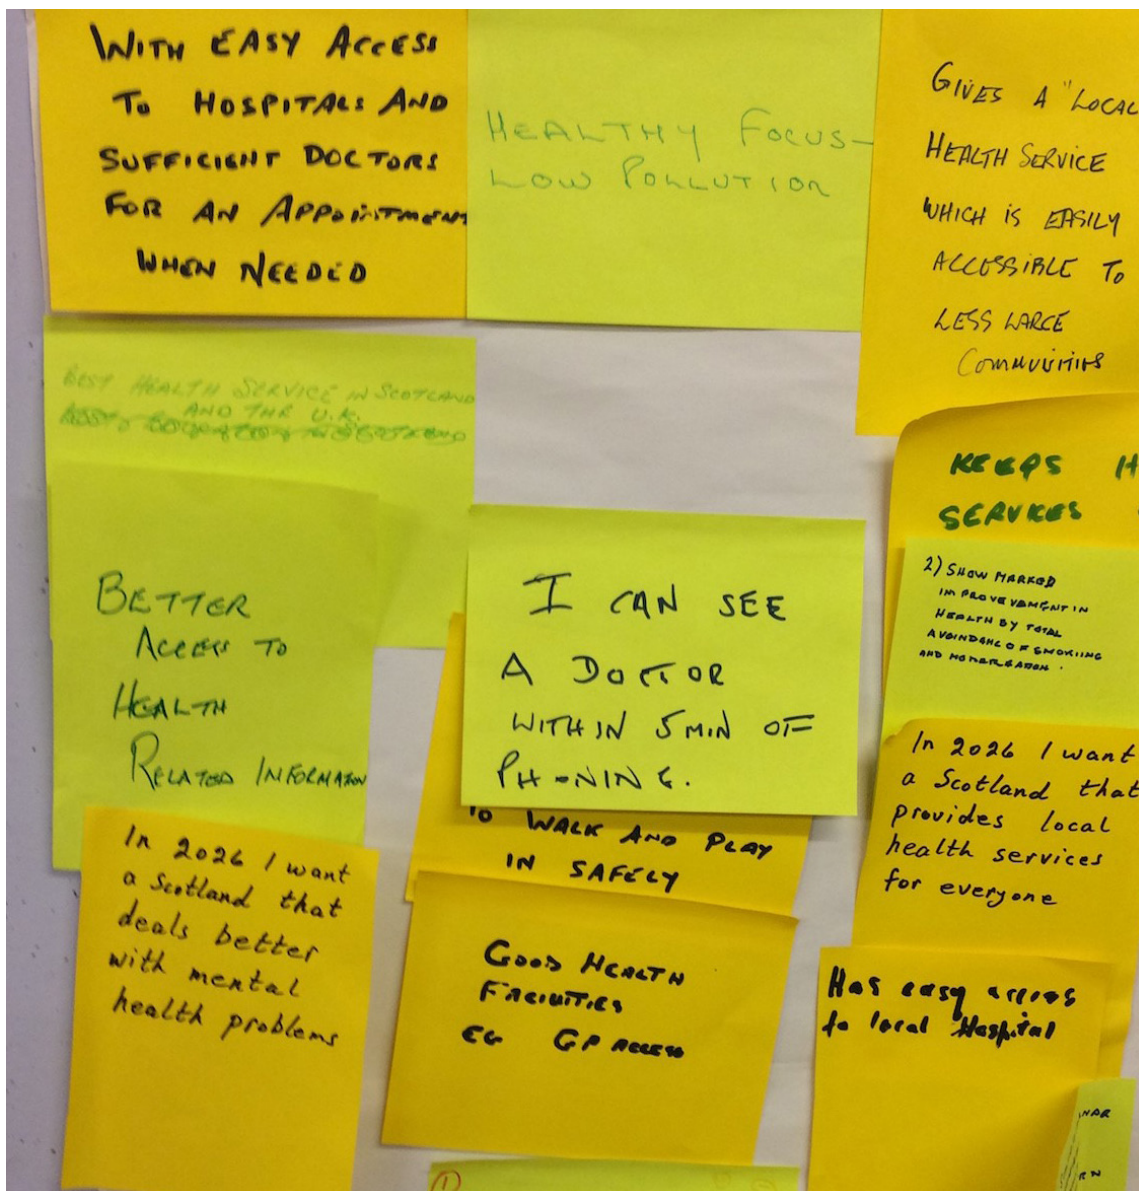 WITH EASY ACCESS
TO HOSPITALS AND
SUFFICIENT DOCTORS
FOR AN APPOINTMENT
WHEN NEEDED
HEALTHY FOCUS-
LOW POLLUTION
GIVES A "LOCAL
HEALTH SERVICE
WHICH IS EASILY
ACCESSIBLE TO
LESS LARGE
COMMUNITIES
BEST HEALTH SERVICE IN SCOTLAND
AND THE U.K.
KEEPS H
SERVICES
BETTER
ACCESS TO
HEALTH
RELATED INFORMATION
I CAN SEE
A DOCTOR
WITHIN 5 MIN OF
PHONING.
2) SHOW MARKED
IMPROVEMENT IN
HEALTH BY TOTAL
AVOIDANCE OF SMOKIING
AND MODERATION.
TO WALK AND PLAY
IN SAFELY
In 2026 I want
a Scotland that
provides local
health services
for everyone
In 2026 I want
a Scotland that
deals better
with mental
health problems
GOOD HEALTH
FACILITIES
EG GP ACCESS
Has easy access
to local Hospital
1